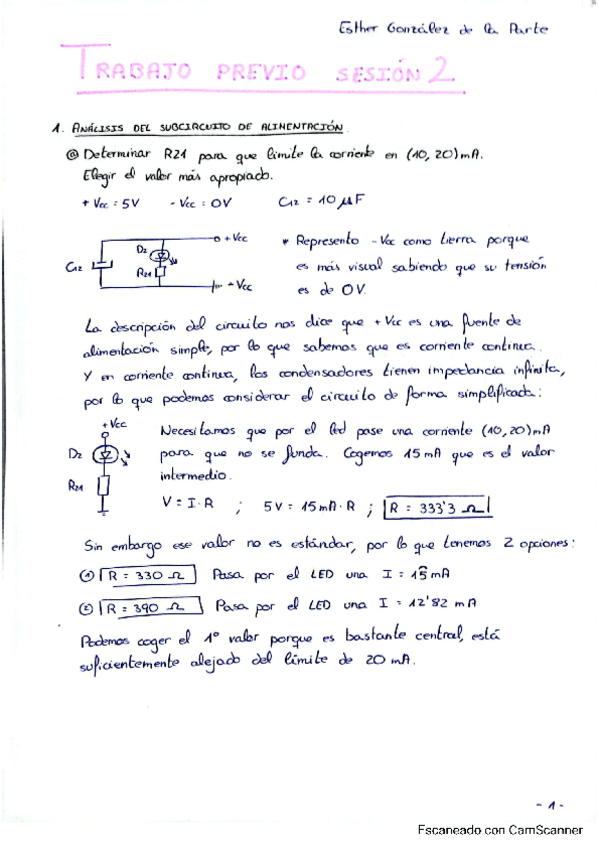 Esther González de la Parte
TRABAJO PREVIO SESIÓN 2
1. ANÁLISIS DEL SUBCIRCUITO DE ALIMENTACIÓN.
@ Determinar R21 para que limite la corriente en (10, 20) mA.
Elegir el valor más apropiado.
+ Vcc = 5V - Vcc = 0V C12 = 10 μF
+ Vcc
D2
C12
R21
- Vcc
* Represento -Vcc como tierra porque
es más visual sabiendo que su tensión
es de 0V.
La descripción del circuito nos dice que +Vcc es una fuente de
alimentación simple, por lo que sabemos que es corriente continua.
Y en corriente continua, los condensadores tienen impedancia infinita,
por lo que podemos considerar el circuito de forma simplificada:
+Vcc
D2
R21
Necesitamos que por el led pase una corriente (10, 20) mA
para que no se funda. Cogemos 15 mA que es el valor
intermedio.
V = I · R ; 5V = 15 mA · R ; R = 333'3 Ω
Sin embargo ese valor no es estándar, por lo que tenemos 2 opciones:
① R = 330 Ω Pasa por el LED una I = 15 mA
② R = 390 Ω Pasa por el LED una I = 12'82 mA
Podemos coger el 1º valor porque es bastante central, está
suficientemente alejado del límite de 20 mA.
- 1 -
Escaneado con CamScanner